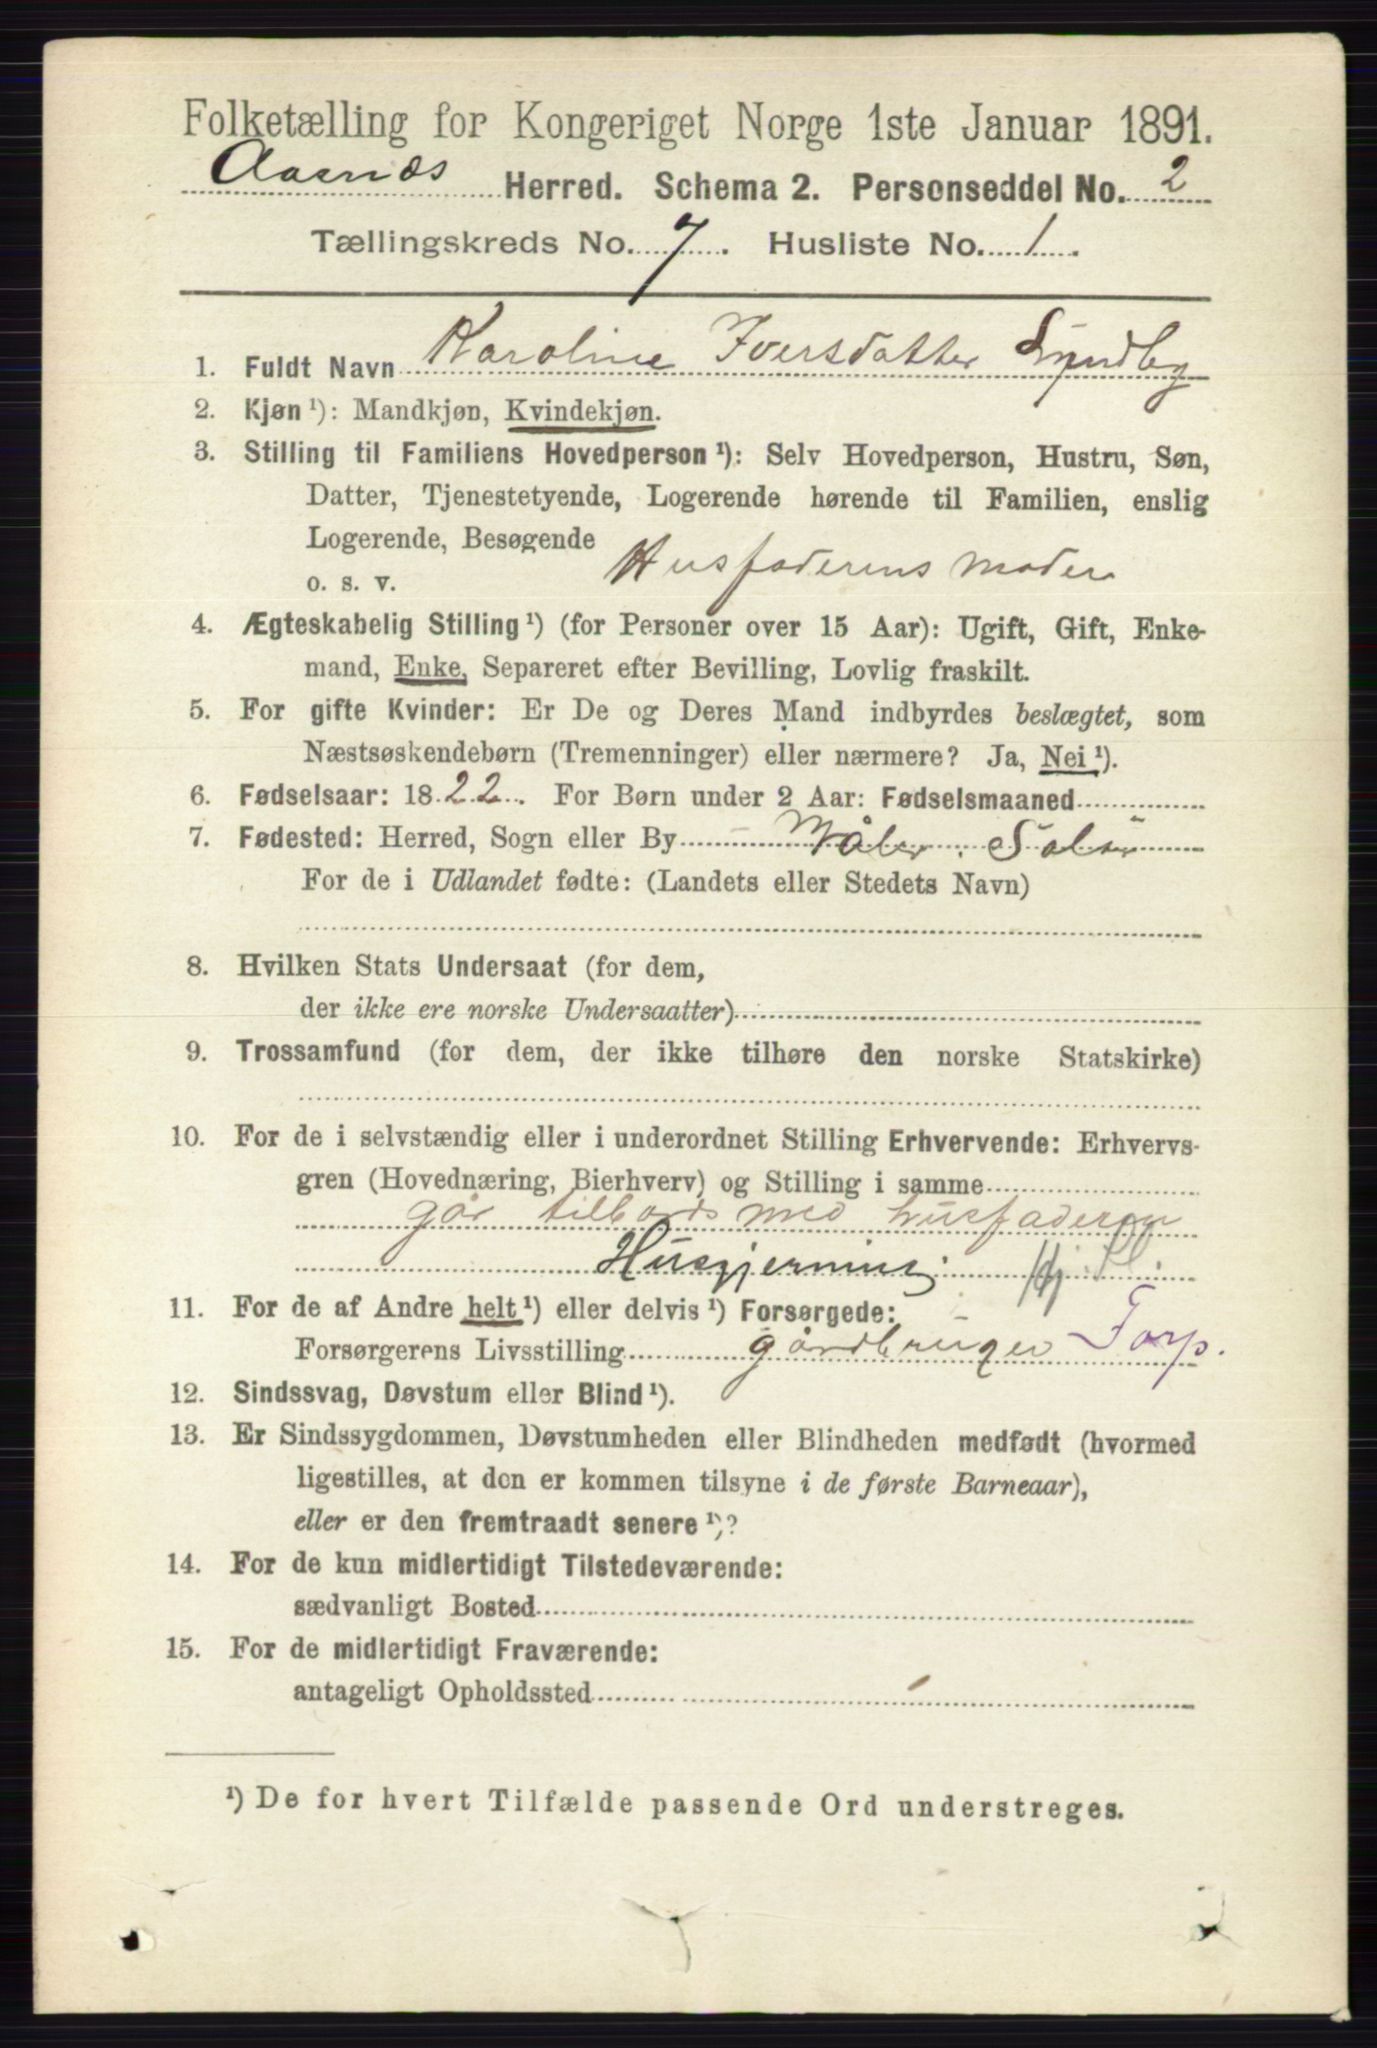 Folketælling for Kongeriget Norge 1ste Januar 1891.
Aasnæs Herred. Schema 2. Personseddel No. 2
Tællingskreds No. 7. Husliste No. 1.
1. Fuldt Navn Karoline Iversdatter Lyndby
2. Kjøn ¹): Mandkjøn, Kvindekjøn.
3. Stilling til Familiens Hovedperson ¹): Selv Hovedperson, Hustru, Søn,
Datter, Tjenestetyende, Logerende hørende til Familien, enslig
Logerende, Besøgende
o. s. v. Husfaderens moder
4. Ægteskabelig Stilling ¹) (for Personer over 15 Aar): Ugift, Gift, Enke-
mand, Enke, Separeret efter Bevilling, Lovlig fraskilt.
5. For gifte Kvinder: Er De og Deres Mand indbyrdes beslægtet, som
Næstsøskendebørn (Tremenninger) eller nærmere? Ja, Nei ¹).
6. Fødselsaar: 1822. For Børn under 2 Aar: Fødselsmaaned
7. Fødested: Herred, Sogn eller By Våler. Solør
For de i Udlandet fødte: (Landets eller Stedets Navn)
8. Hvilken Stats Undersaat (for dem,
der ikke ere norske Undersaatter)
9. Trossamfund (for dem, der ikke tilhøre den norske Statskirke)
10. For de i selvstændig eller i underordnet Stilling Erhvervende: Erhvervs-
gren (Hovednæring, Bierhverv) og Stilling i samme
går tilbords med husfaderen
Husgjerning
11. For de af Andre helt ¹) eller delvis ¹) Forsørgede:
Forsørgerens Livsstilling gårdbruger Forp.
12. Sindssvag, Døvstum eller Blind ¹).
13. Er Sindssygdommen, Døvstumheden eller Blindheden medfødt (hvormed
ligestilles, at den er kommen tilsyne i de første Barneaar),
eller er den fremtraadt senere ¹)?
14. For de kun midlertidigt Tilstedeværende:
sædvanligt Bosted
15. For de midlertidigt Fraværende:
antageligt Opholdssted
¹) De for hvert Tilfælde passende Ord understreges.